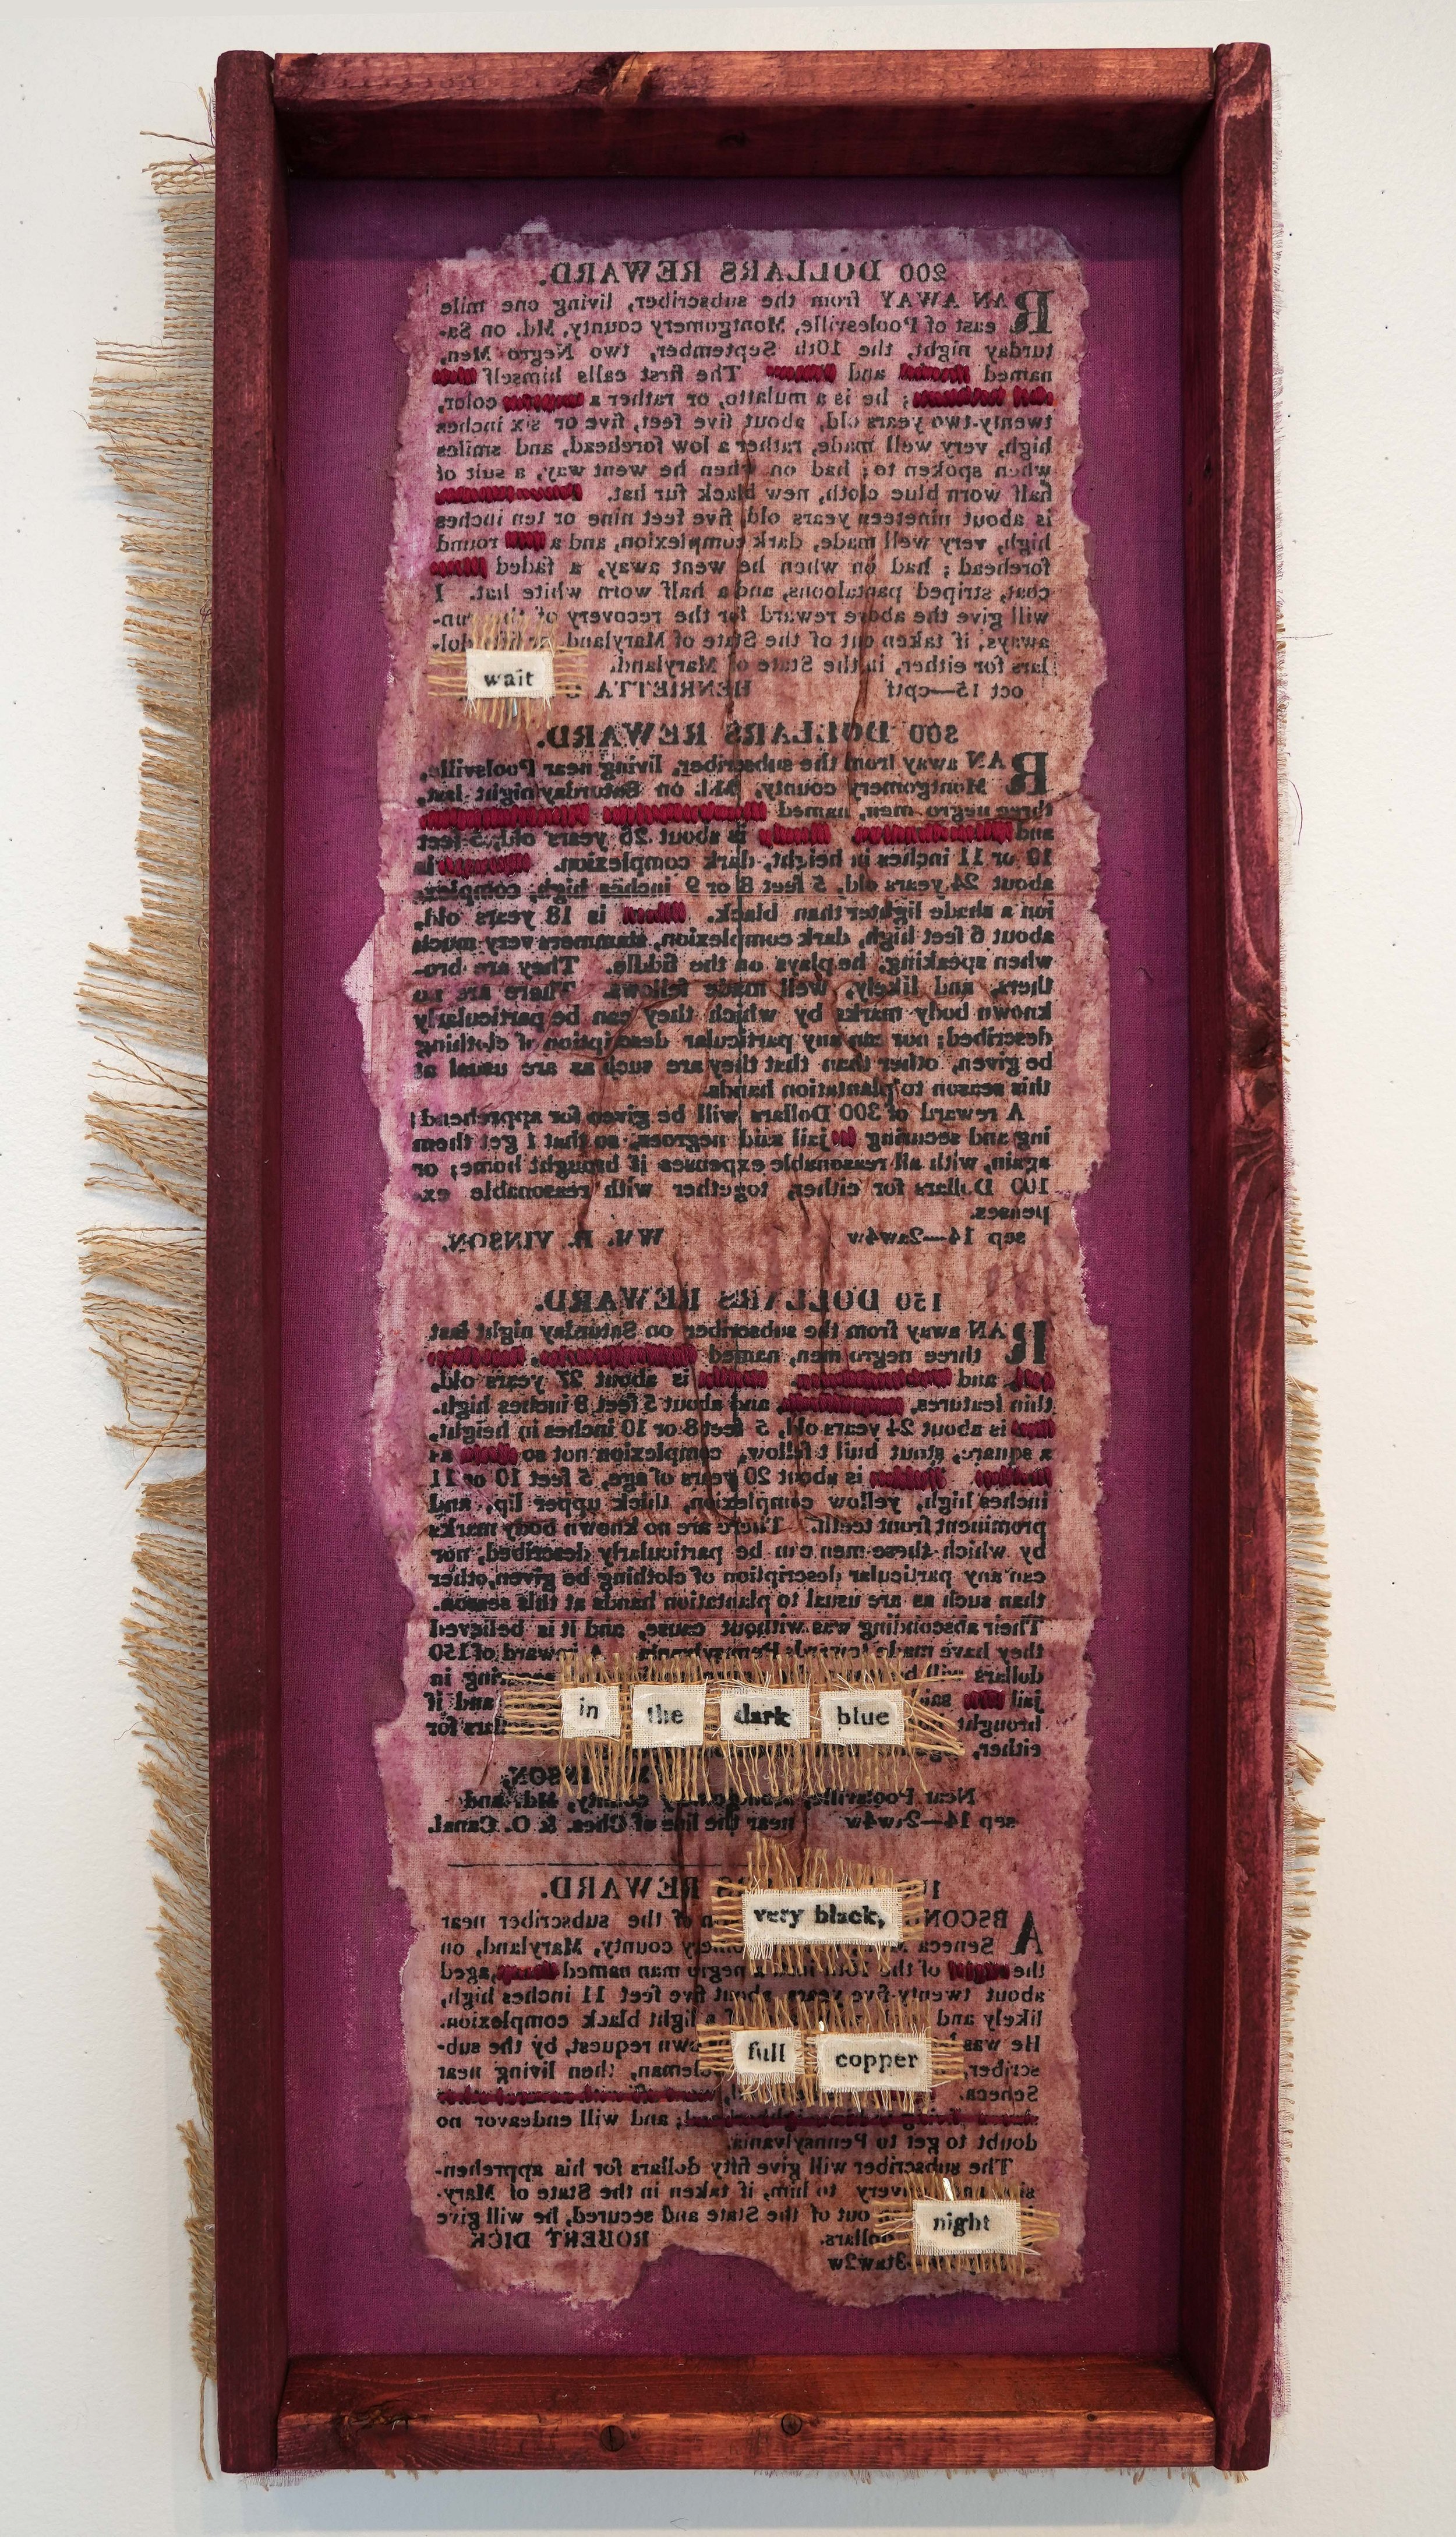 200 DOLLARS REWARD.
RAN AWAY from the subscriber, living one mile
east of Poolesville, Montgomery county, Md. on Sa-
turday night, the 10th September, two Negro Men,
named and The first calls himself
; he is a mulatto, or rather a color,
twenty-two years old, about five feet, five or six inches
high, very well made, rather a low forehead, and smiles
when spoken to; had on when he went way, a suit of
half worn blue cloth, new black fur hat.
is about nineteen years old, five feet nine or ten inches
high, very well made, dark complexion, and a round
forehead; had on when he went away, a faded
coat, striped pantaloons, and a half worn white hat. I
will give the above reward for the recovery of the run-
aways, if taken out of the State of Maryland, or fifty dol-
lars for either, in the State of Maryland.
wait
oct 15—cptf HENRIETTA
300 DOLLARS REWARD.
RAN away from the subscriber, living near Poolsville,
Montgomery county, Md. on Saturday night last,
three negro men, named
and is about 26 years old, 5 feet
10 or 11 inches in height, dark complexion. is
about 24 years old, 5 feet 8 or 9 inches high, complex-
ion a shade lighter than black. is 18 years old,
about 6 feet high, dark complexion, stammers very much
when speaking, he plays on the fiddle. They are bro-
thers, and likely, well made fellows. There are no
known body marks by which they can be particularly
described; nor can any particular description of clothing
be given, other than that they are such as are usual at
this season to plantation hands.
A reward of 300 Dollars will be given for apprehend
ing and securing jail said negroes, so that I get them
again, with all reasonable expenses if brought home; or
100 Dollars for either, together with reasonable ex-
penses.
sep 14—2aw4w WM. R. VINSON.
150 DOLLARS REWARD.
RAN away from the subscriber on Saturday night last
three negro men, named
and is about 27 years old,
thin features, and about 5 feet 8 inches high.
is about 24 years old, 5 feet 8 or 10 inches in height,
a square, stout built fellow, complexion not so as
is about 20 years of age, 5 feet 10 or 11
inches high, yellow complexion, thick upper lip, and
prominent front teeth. There are no known body marks
by which these men can be particularly described, nor
can any particular description of clothing be given, other
than such as are usual to plantation hands at this season.
Their absconding was without cause, and it is believed
they have made towards Pennsylvania. A reward of 150
dollars will be securing in
jail said and if
in the dark blue
brought dollars for
either,
Near Poolsville, Montgomery county, Md. and
sep 14—2w4w near the line of Ches. & O. Canal.
REWARD.
very black,
ABSCOND of the subscriber near
Seneca county, Maryland, on
the night of the a negro man named aged
about twenty-five years, about five feet 11 inches high,
likely and light black complexion.
He was own request, by the sub-
full copper
scriber, then living near
Seneca.
; and will endeavor no
doubt to get to Pennsylvania.
The subscriber will give fifty dollars for his apprehen-
delivery to him, if taken in the State of Mary-
out of the State and secured, he will give
night
dollars. ROBERT DICK
3taw2w